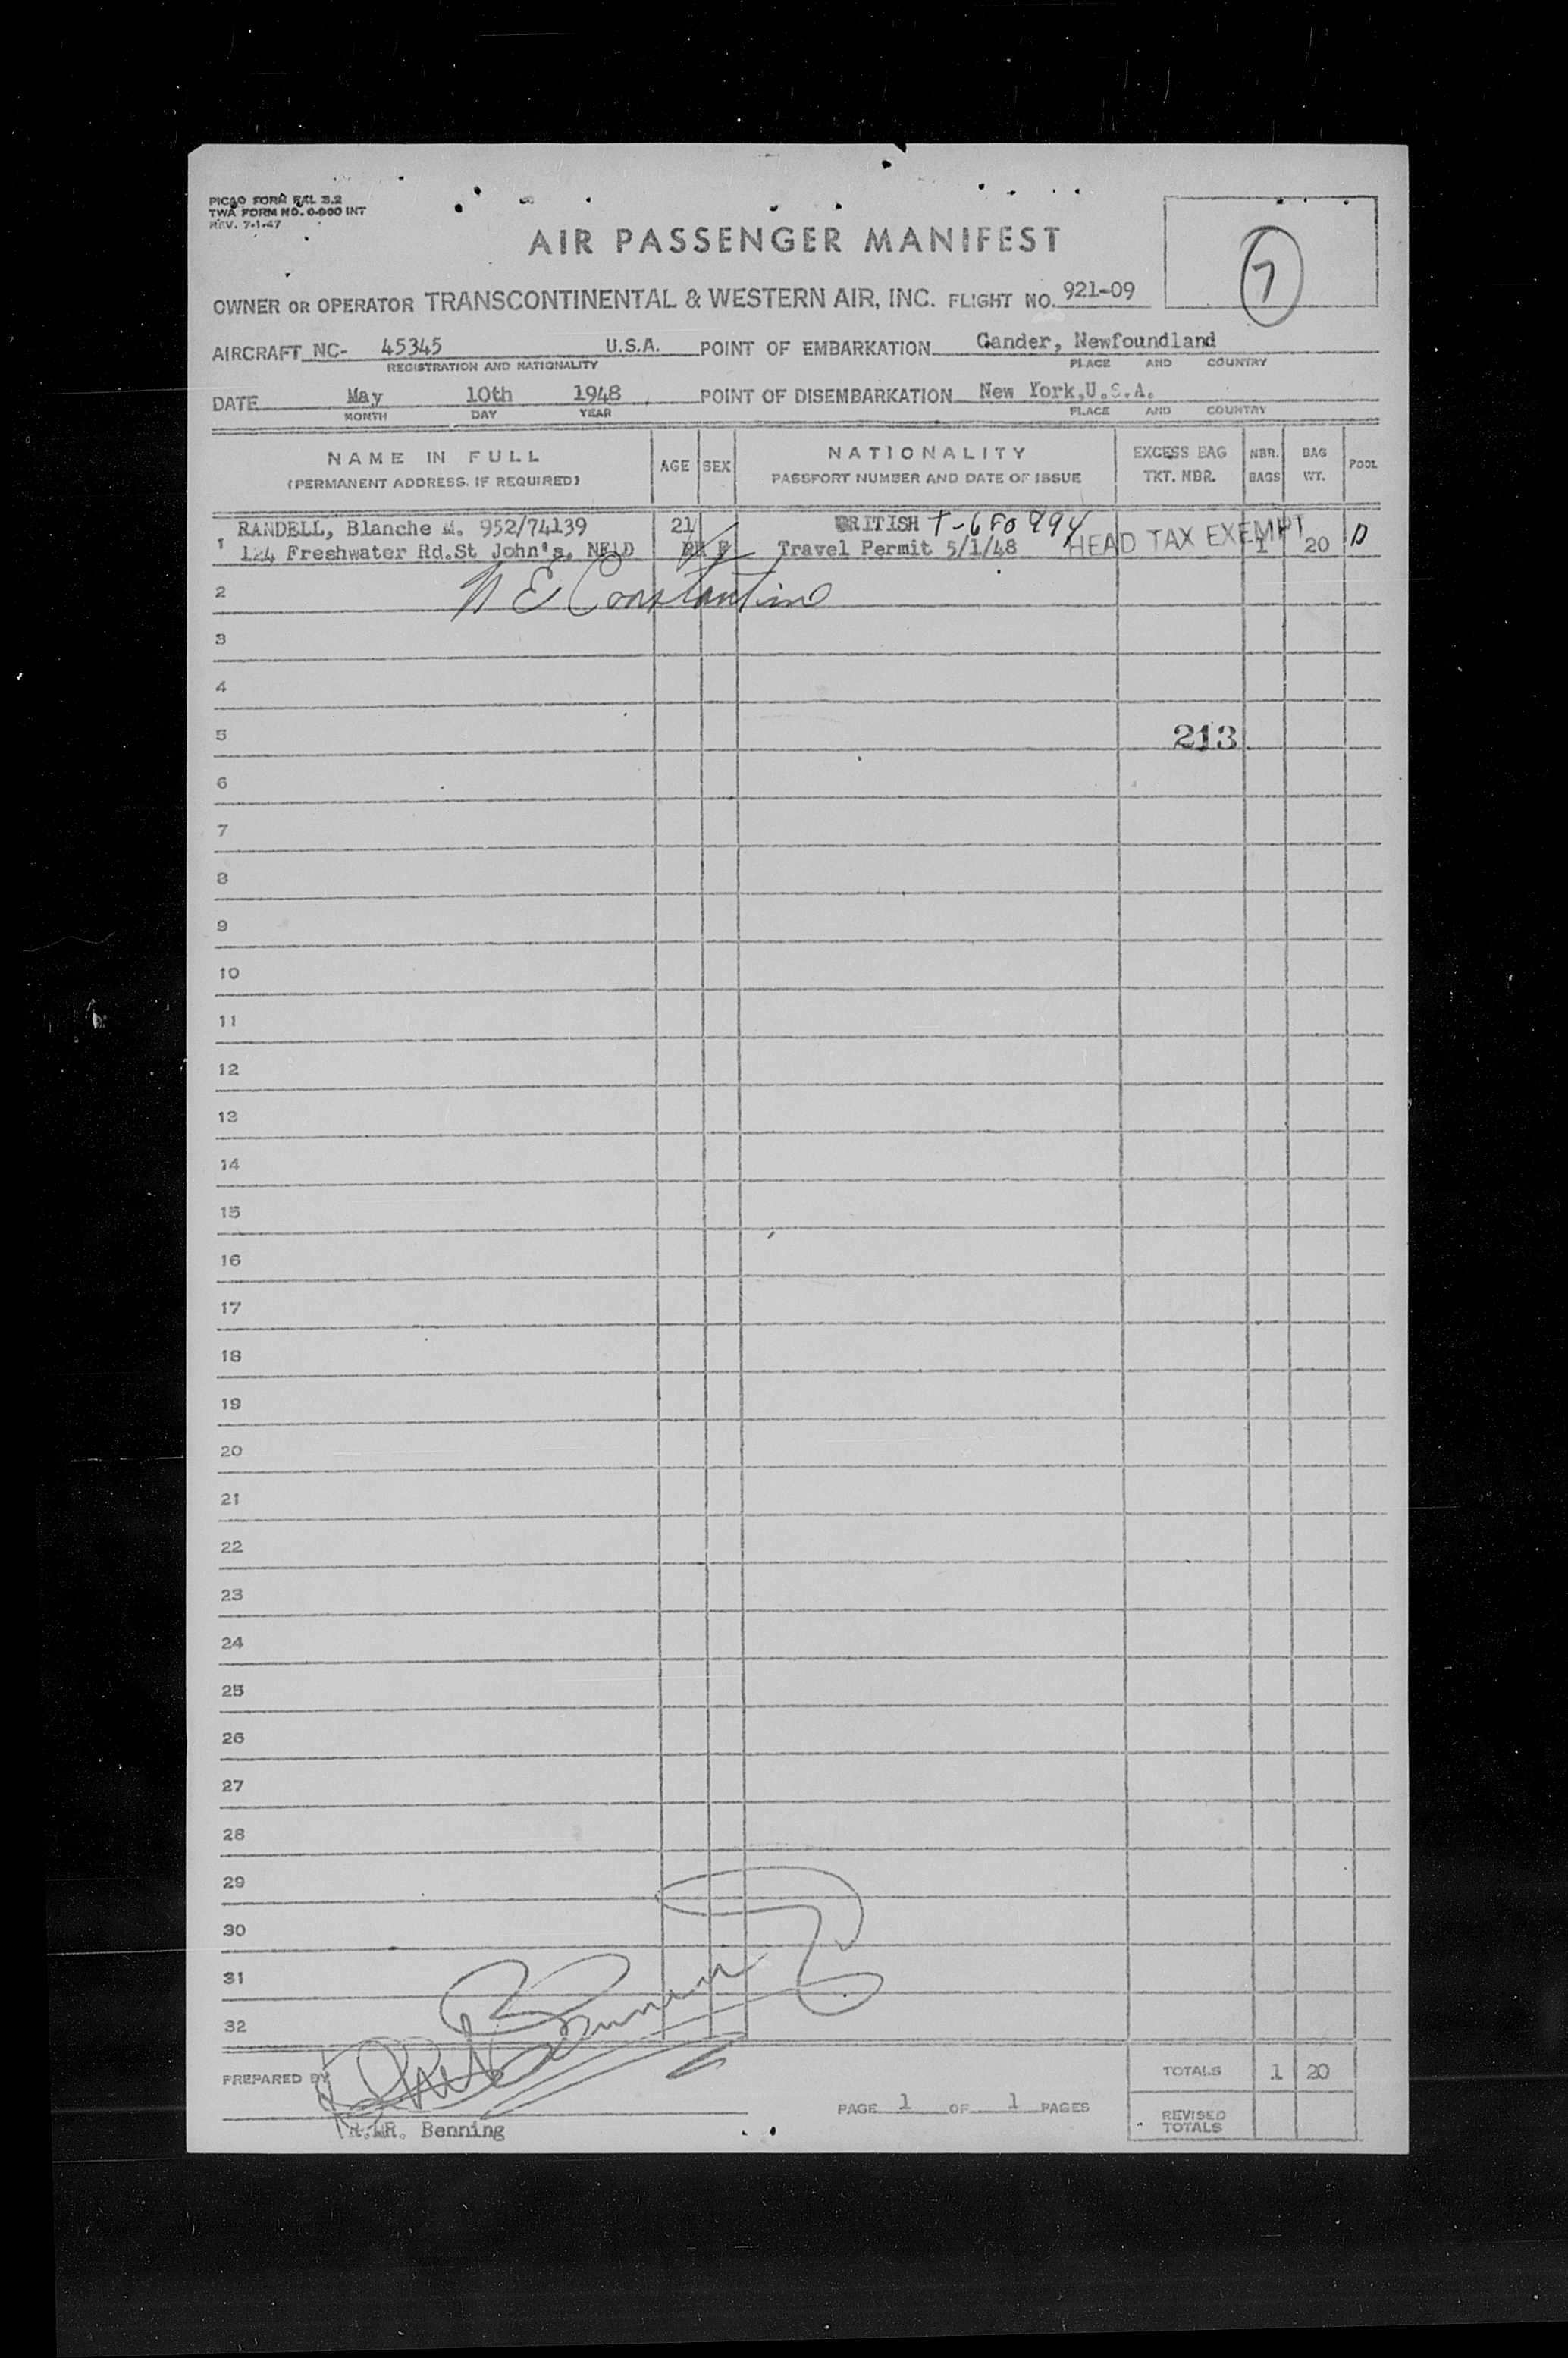 PICAO FORM FAL 3.2
TWA FORM NO. O-900 INT
REV. 7-1-47
AIR PASSENGER MANIFEST
7
OWNER OR OPERATOR TRANSCONTINENTAL & WESTERN AIR, INC. FLIGHT NO. 921-09
AIRCRAFT NC- 45345 U.S.A. POINT OF EMBARKATION Gander, Newfoundland
REGISTRATION AND NATIONALITY PLACE AND COUNTRY
DATE May 10th 1948 POINT OF DISEMBARKATION New York,U.S.A.
MONTH DAY YEAR PLACE AND COUNTRY
NAME IN FULL AGE SEX NATIONALITY EXCESS BAG NBR. BAG POOL
(PERMANENT ADDRESS, IF REQUIRED) PASSPORT NUMBER AND DATE OF ISSUE TKT. NBR. BAGS WT.
RANDELL, Blanche M. 952/74139 21 BRITISH T-680994
1 124 Freshwater Rd.St John's, NFLD F Travel Permit 5/1/48 HEAD TAX EXEMPT 1 20 D
2 N E Constantine
3
4
5 213
6
7
8
9
10
11
12
13
14
15
16
17
18
19
20
21
22
23
24
25
26
27
28
29
30
31
32
PREPARED BY TOTALS 1 20
PAGE 1 OF 1 PAGES REVISED
TOTALS
Benning